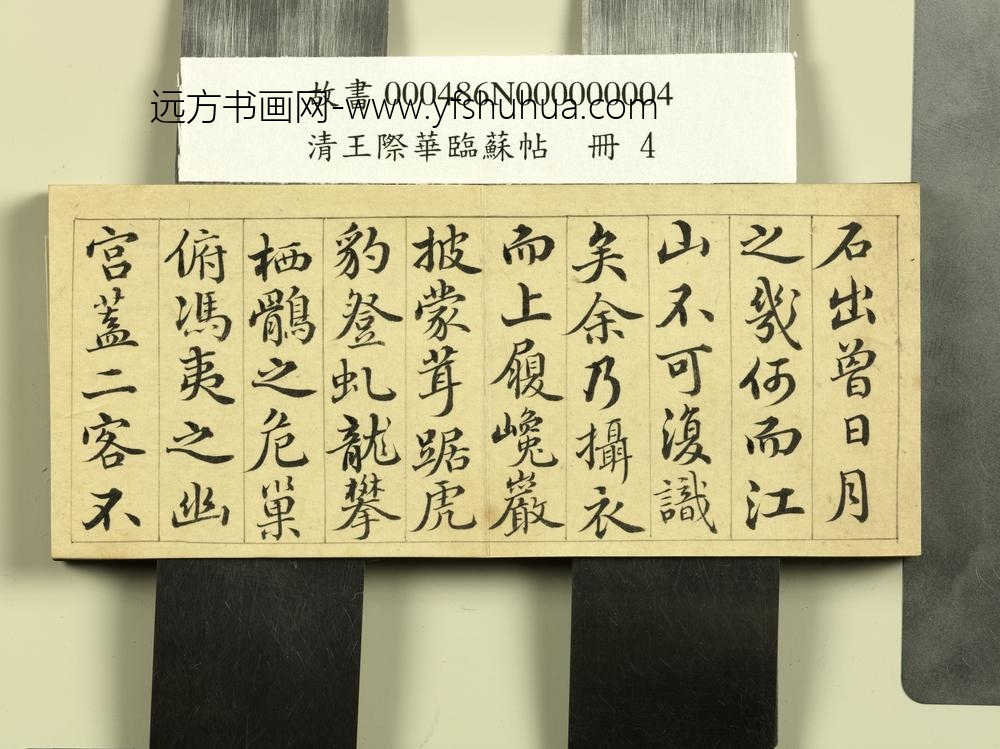 故書 000486N000000004
远方书画网-www.yfshuhua.com
清王際華臨蘇帖 冊 4
石出曾日月
之幾何而江
山不可復識
矣余乃攝衣
而上履巉巖
披蒙茸踞虎
豹登虬龍攀
栖鶻之危巢
俯馮夷之幽
宮蓋二客不